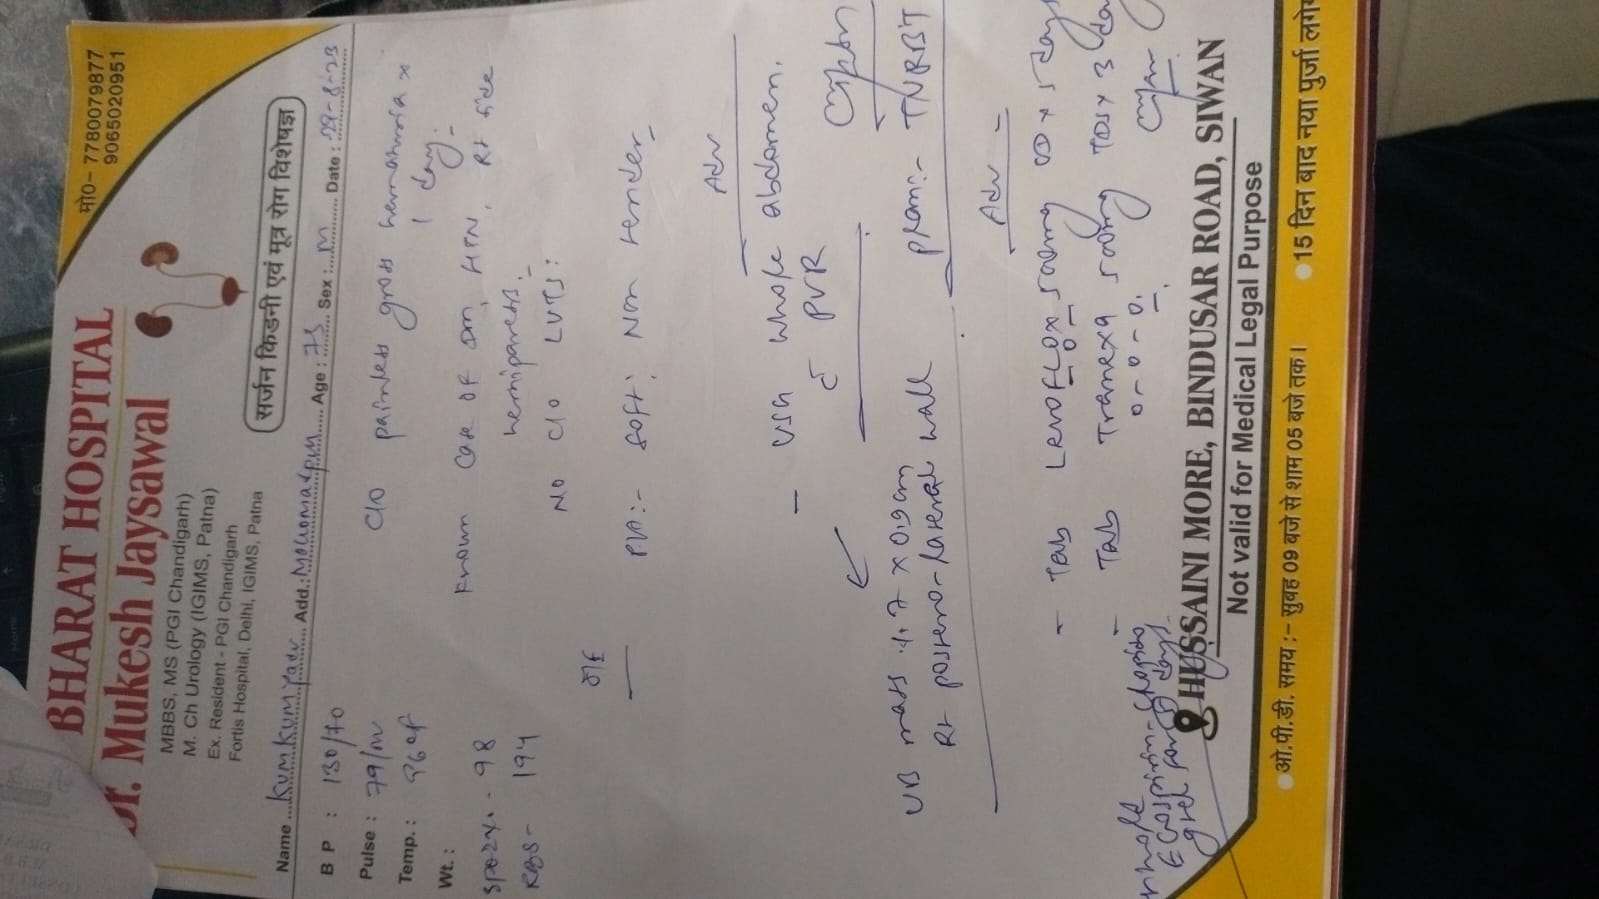 मो०- 7780079877
9065020951
BHARAT HOSPITAL
Dr. Mukesh Jaysawal
MBBS, MS (PGI Chandigarh)
M. Ch Urology (IGIMS, Patna)
Ex. Resident - PGI Chandigarh
Fortis Hospital, Delhi, IGIMS, Patna
सर्जन किडनी एवं मूत्र रोग विशेषज्ञ
Name Kumkum Add.: Age : 75 Sex : M Date : 29-8-23
B P : 130/70
Pulse : 79/m
Temp. : 96°F
Wt. :
SPO2%. - 98
RBS- 194
C/O painless gross hematuria x
1 day.
Known case of DM, HTN, Rt side
hemiparesis.
No C/O LUTS
O/E
P/A:- Soft, Non tender
Adv
- USG whole abdomen.
c̄ PVR
UB mass 1.7 x 0.9 cm
Rt postero-lateral wall
plan:- TURBT
Adv
- Tab Levoflox 500mg OD x 5 days
- Tab Tranexa 500mg TDS x 3 days
0-0-0
HUSSAINI MORE, BINDUSAR ROAD, SIWAN
Not valid for Medical Legal Purpose
ओ.पी.डी. समय :- सुबह 09 बजे से शाम 05 बजे तक।
15 दिन बाद नया पुर्जा लगेग